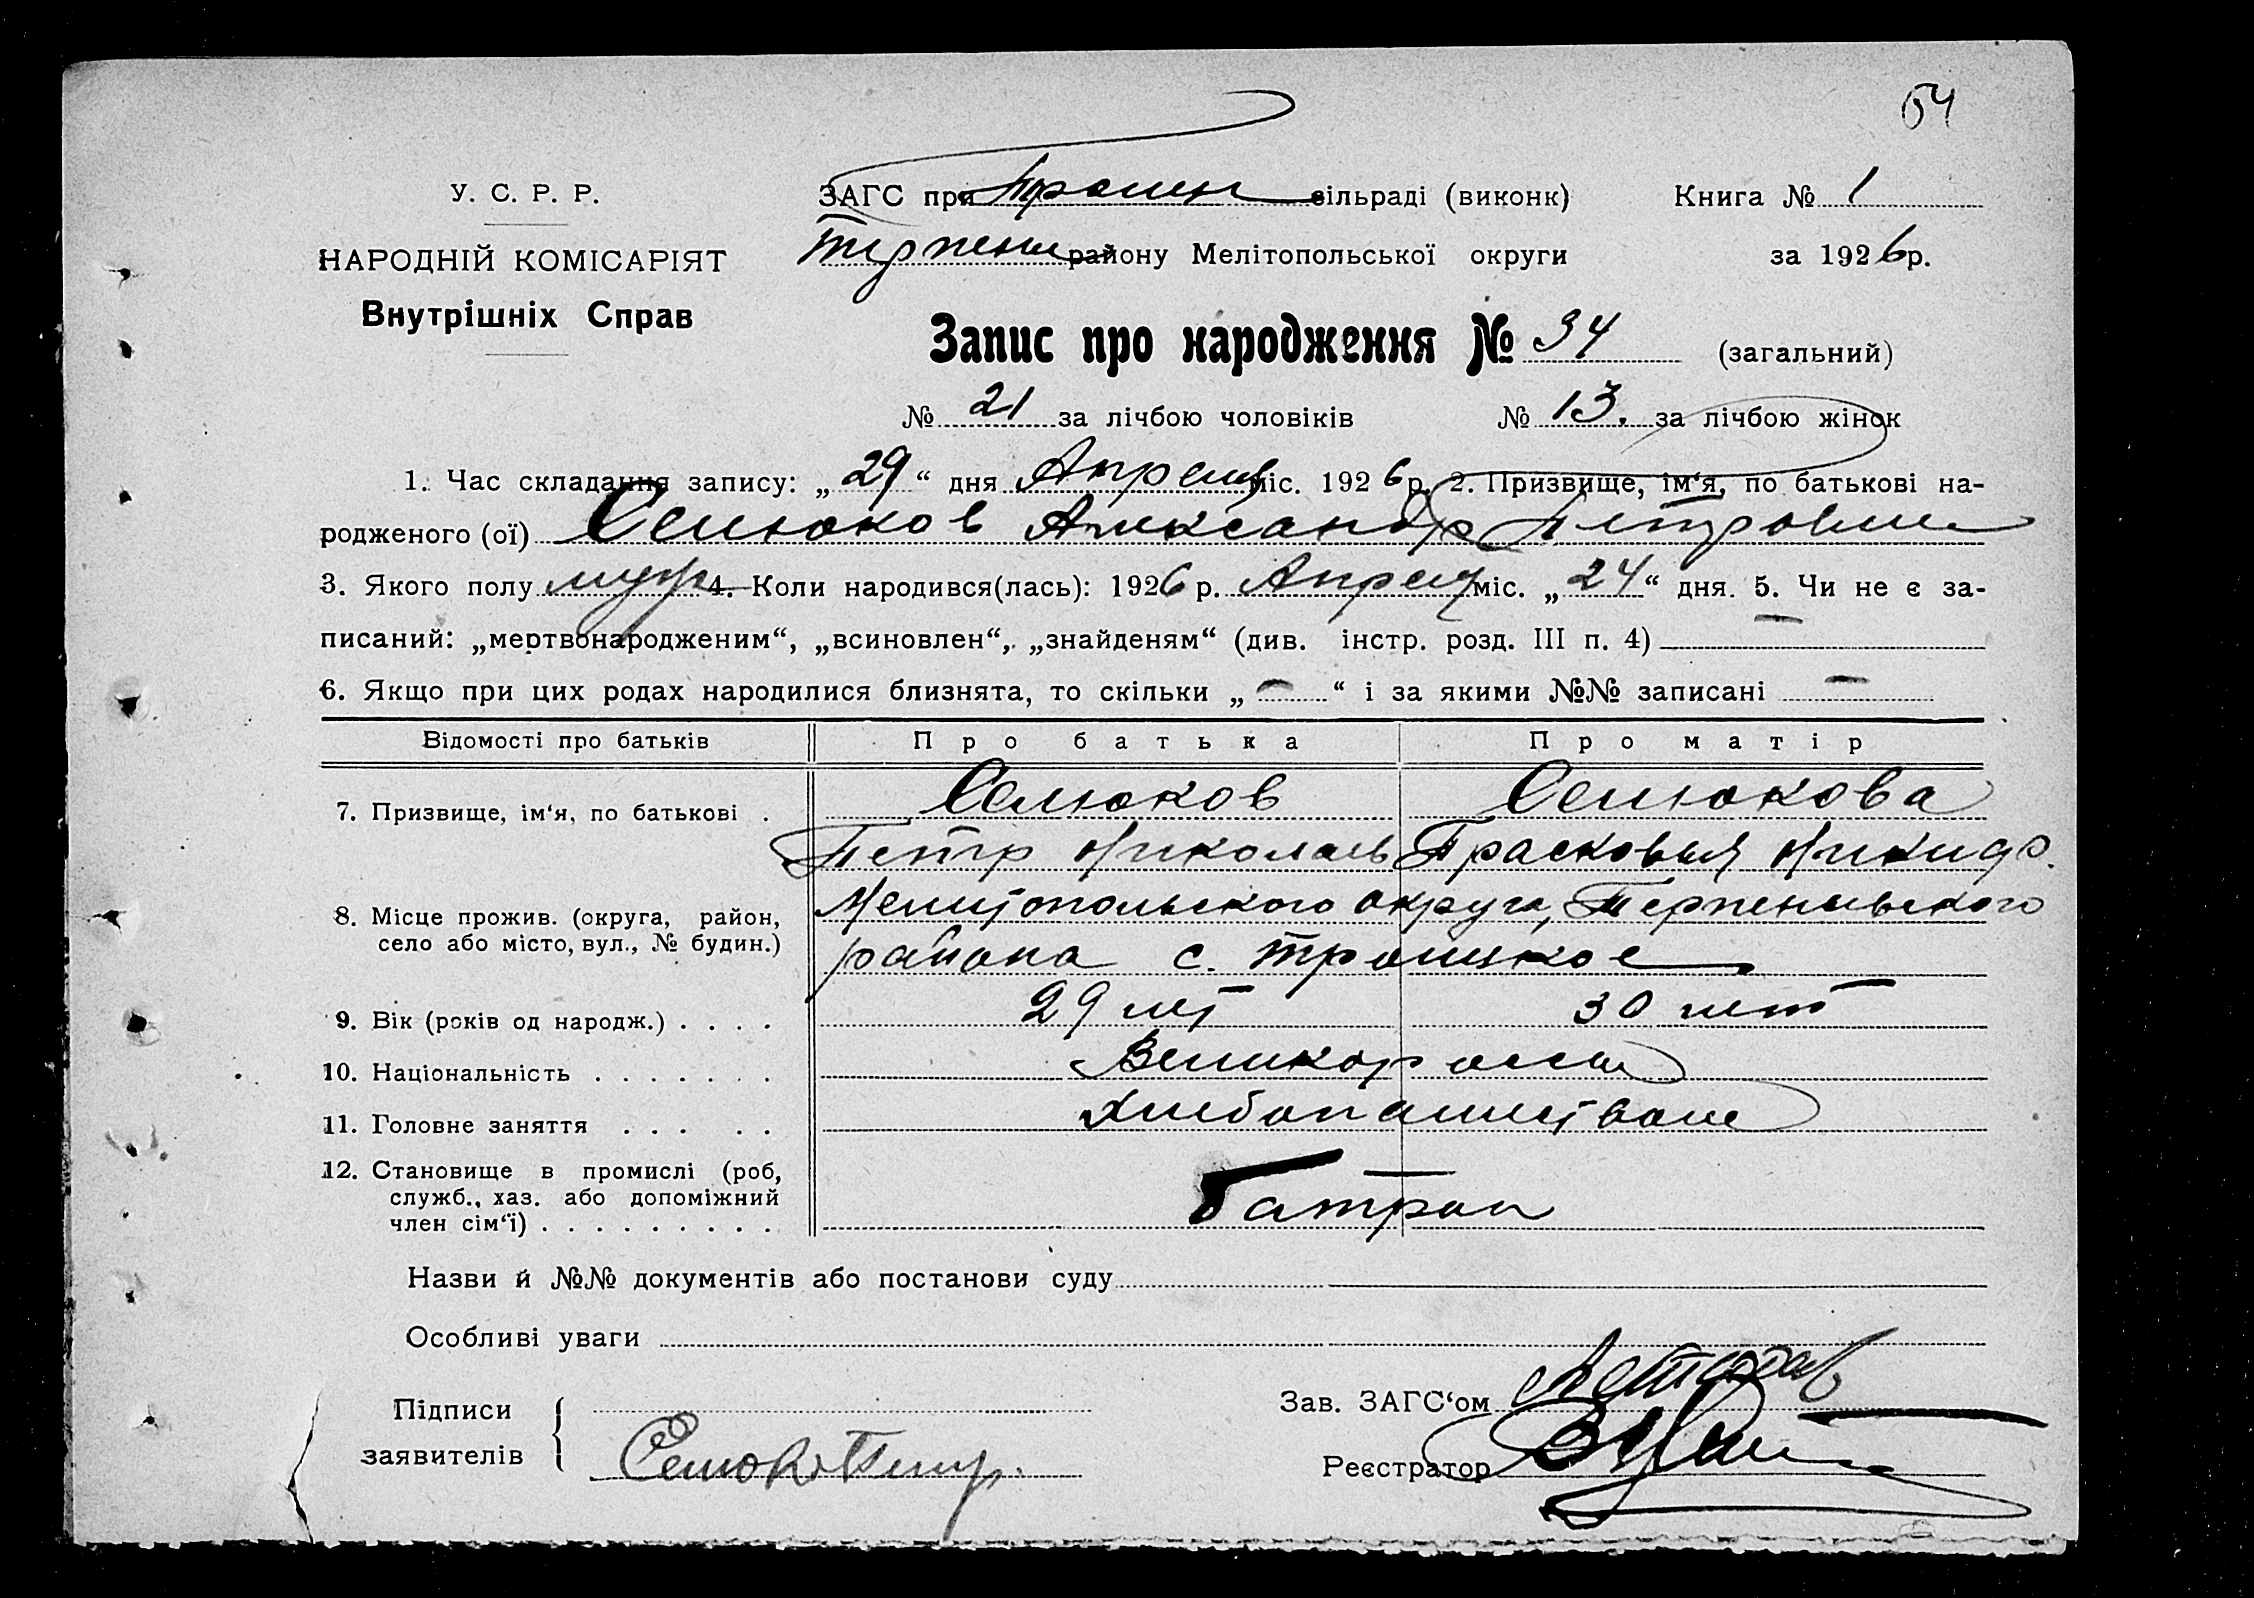 54
У. С. Р. Р.
НАРОДНІЙ КОМІСАРІЯТ
Внутрішніх Справ
ЗАГС при Троицк сільраді (виконк) Книга № 1
Терпени району Мелітопольської округи за 1926 р.
Запис про народження № 34 (загальний)
№ 21 за лічбою чоловіків № 13. за лічбою жінок
1. Час складання запису: „29“ дня Апреля міс. 1926 р. 2. Призвище, ім‘я, по батькові на-
родженого (ої) Селюков Александр Петрович
3. Якого полу муж 4. Коли народився(лась): 1926 р. Апреля міс. „24“ дня. 5. Чи не є за-
писаний: „мертвонародженим“, „всиновлен“, „знайденям“ (див. інстр. розд. III п. 4) —
6. Якщо при цих родах народилися близнята, то скільки „—“ і за якими №№ записані —
Відомості про батьків Про батька Про матір
7. Призвище, ім‘я, по батькові . Селюков Селюкова
Петр Николаев Прасковья Никиф.
8. Місце прожив. (округа, район, село або місто, вул., № будин.) Мелитопольского округа, Терпеньевского
района с. Троицкое
9. Вік (років од народж.) . . . . 29 лет 30 лет
10. Національність . . . . . . . Великороссы
11. Головне заняття . . . . . Хлебопашество
12. Становище в промислі (роб,
служб., хаз. або допоміжний
член сім‘ї) . . . . . . . . . Батрак
Назви й №№ документів або постанови суду
Особливі уваги
Підписи
заявителів Селюков Петр.
Зав. ЗАГС‘ом
Реєстратор